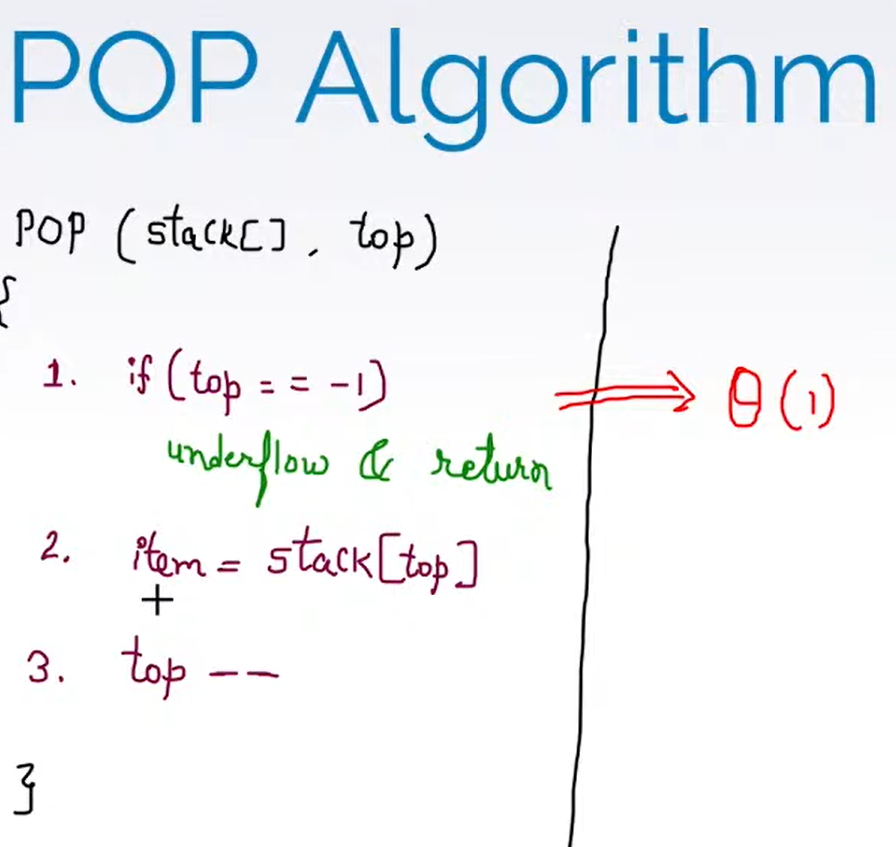 POP Algorithm
POP (stack[], top)
{
1. if (top == -1)
underflow & return
⇒ θ(1)
2. item = stack[top]
3. top --
}